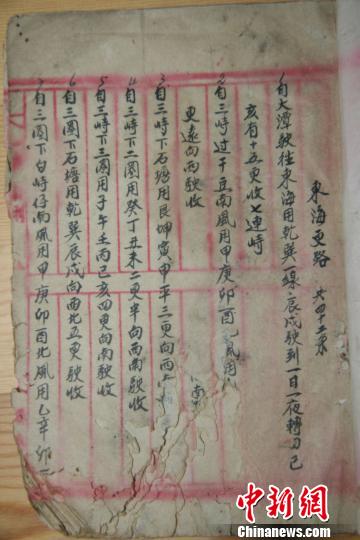 東海更路 共四十五条
1自大潭駛往東海用乾巽線辰戌駛到一日一夜轉刀己
亥有十五更收七連峙
2自三峙过干豆南風用甲庚卯酉
更遠向西駛收
3自三峙下石塘用艮坤寅甲平三更向西
4自三峙下二圈用癸丁丑未二更半向西南駛收
5自三峙下三圈用子午壬丙己亥四更向南駛收
6自三圈下石塘用乾巽辰戌向西北五更駛收
7自三圈下白峙仔南風用甲庚卯酉北風用乙辛卯
中新網
www.
Chinanews.com